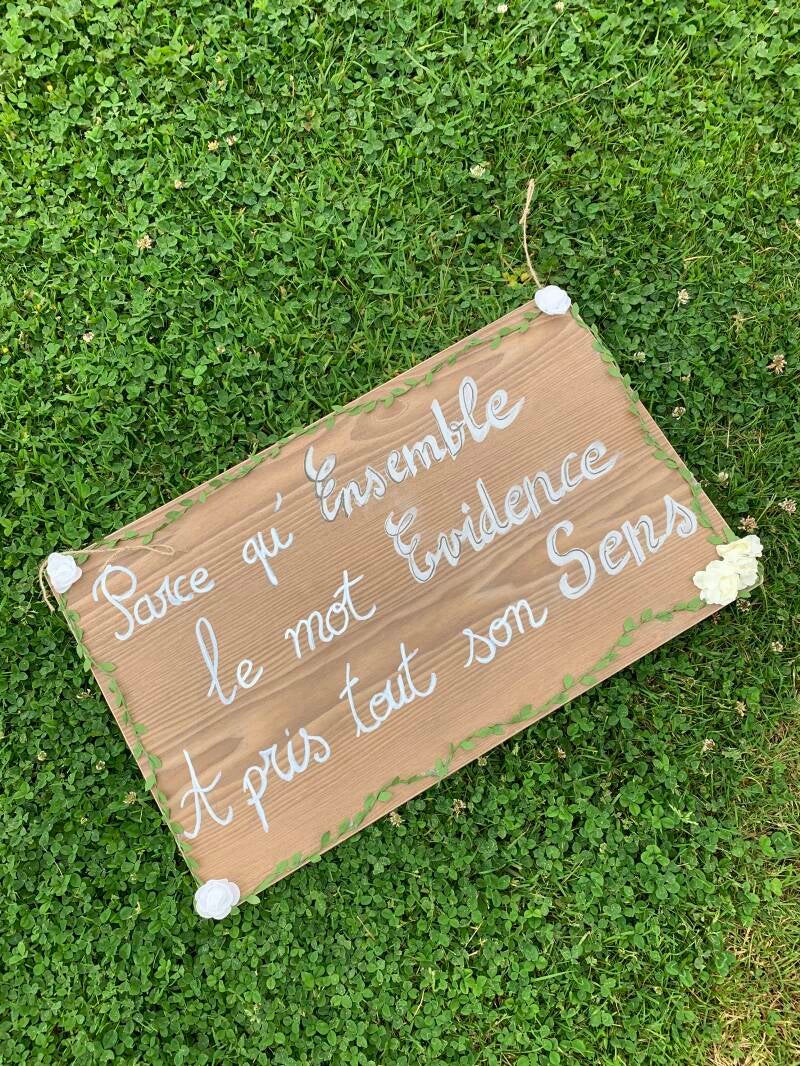 Parce qu'Ensemble
le mot Evidence
A pris tout son Sens